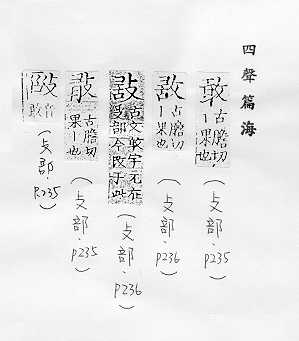 四聲篇海
敢 古膽切丨果也
(攴部.P235)
古膽切丨果也
(攴部.P236)
古文敢字元在𠬪部今改于此
(攴部.P236)
古膽切丨果也
(攴部.P235)
音敢
(攴部.P235)